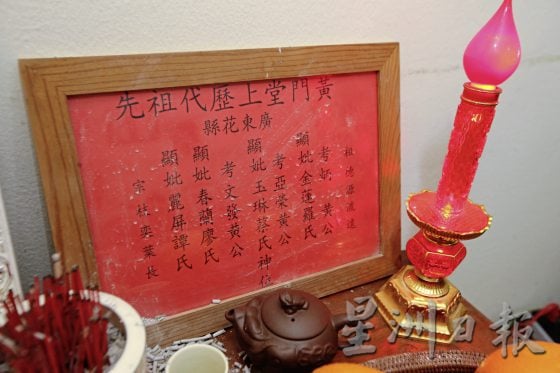 黃門堂上歷代祖先
廣東花縣
祖德源流遠
考炳黃公
顯妣金蓮羅氏
考亞榮黃公
顯妣玉琳蔡氏神位
考文發黃公
顯妣春蘭廖氏
顯妣麗屏譚氏
宗枝奕葉長
星洲日報